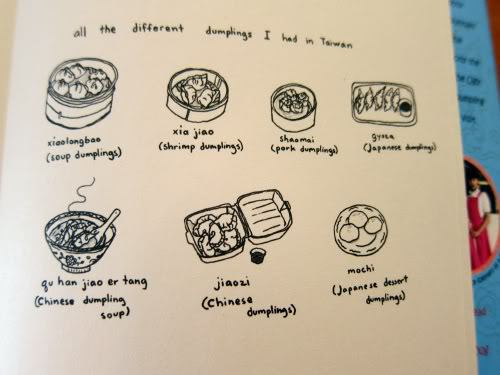 all the different dumplings I had in Taiwan
xiaolongbao
(soup dumplings)
xia jiao
(shrimp dumplings)
shaomai
(pork dumplings)
gyoza
(Japanese dumplings)
qu han jiao er tang
(Chinese dumpling
soup)
jiaozi
(Chinese
dumplings)
mochi
(Japanese dessert
dumplings)